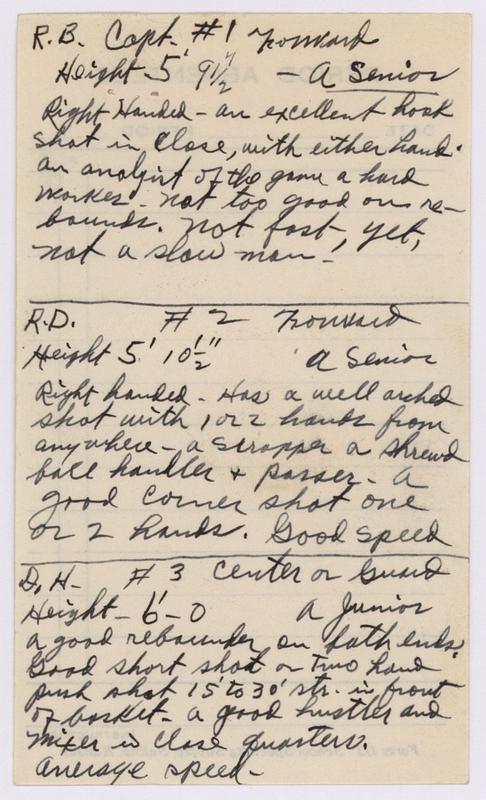 R.B. Capt. #1 Forward
Height - 5' 9 1/2" - A Senior
Right Handed - an excellent hook
shot in close, with either hand.
an analyist of the game a hard
worker - not too good on re-
bounds. Not fast, yet,
not a slow man -
R.D. #2 Forward
Height 5' 10 1/2" a Senior
Right handed - Has a well arched
shot with 1 or 2 hands from
anywhere - a scrapper a shrewd
ball handler + passer - A
good corner shot one
or 2 hands. Good speed
D.H- #3 Center or Guard
Height - 6'-0 a Junior
a good rebounder on both ends.
Good short shot or two hand
push shot 15' to 30' str. in front
of basket - a good hustler and
mixer in close quarters.
average speed -